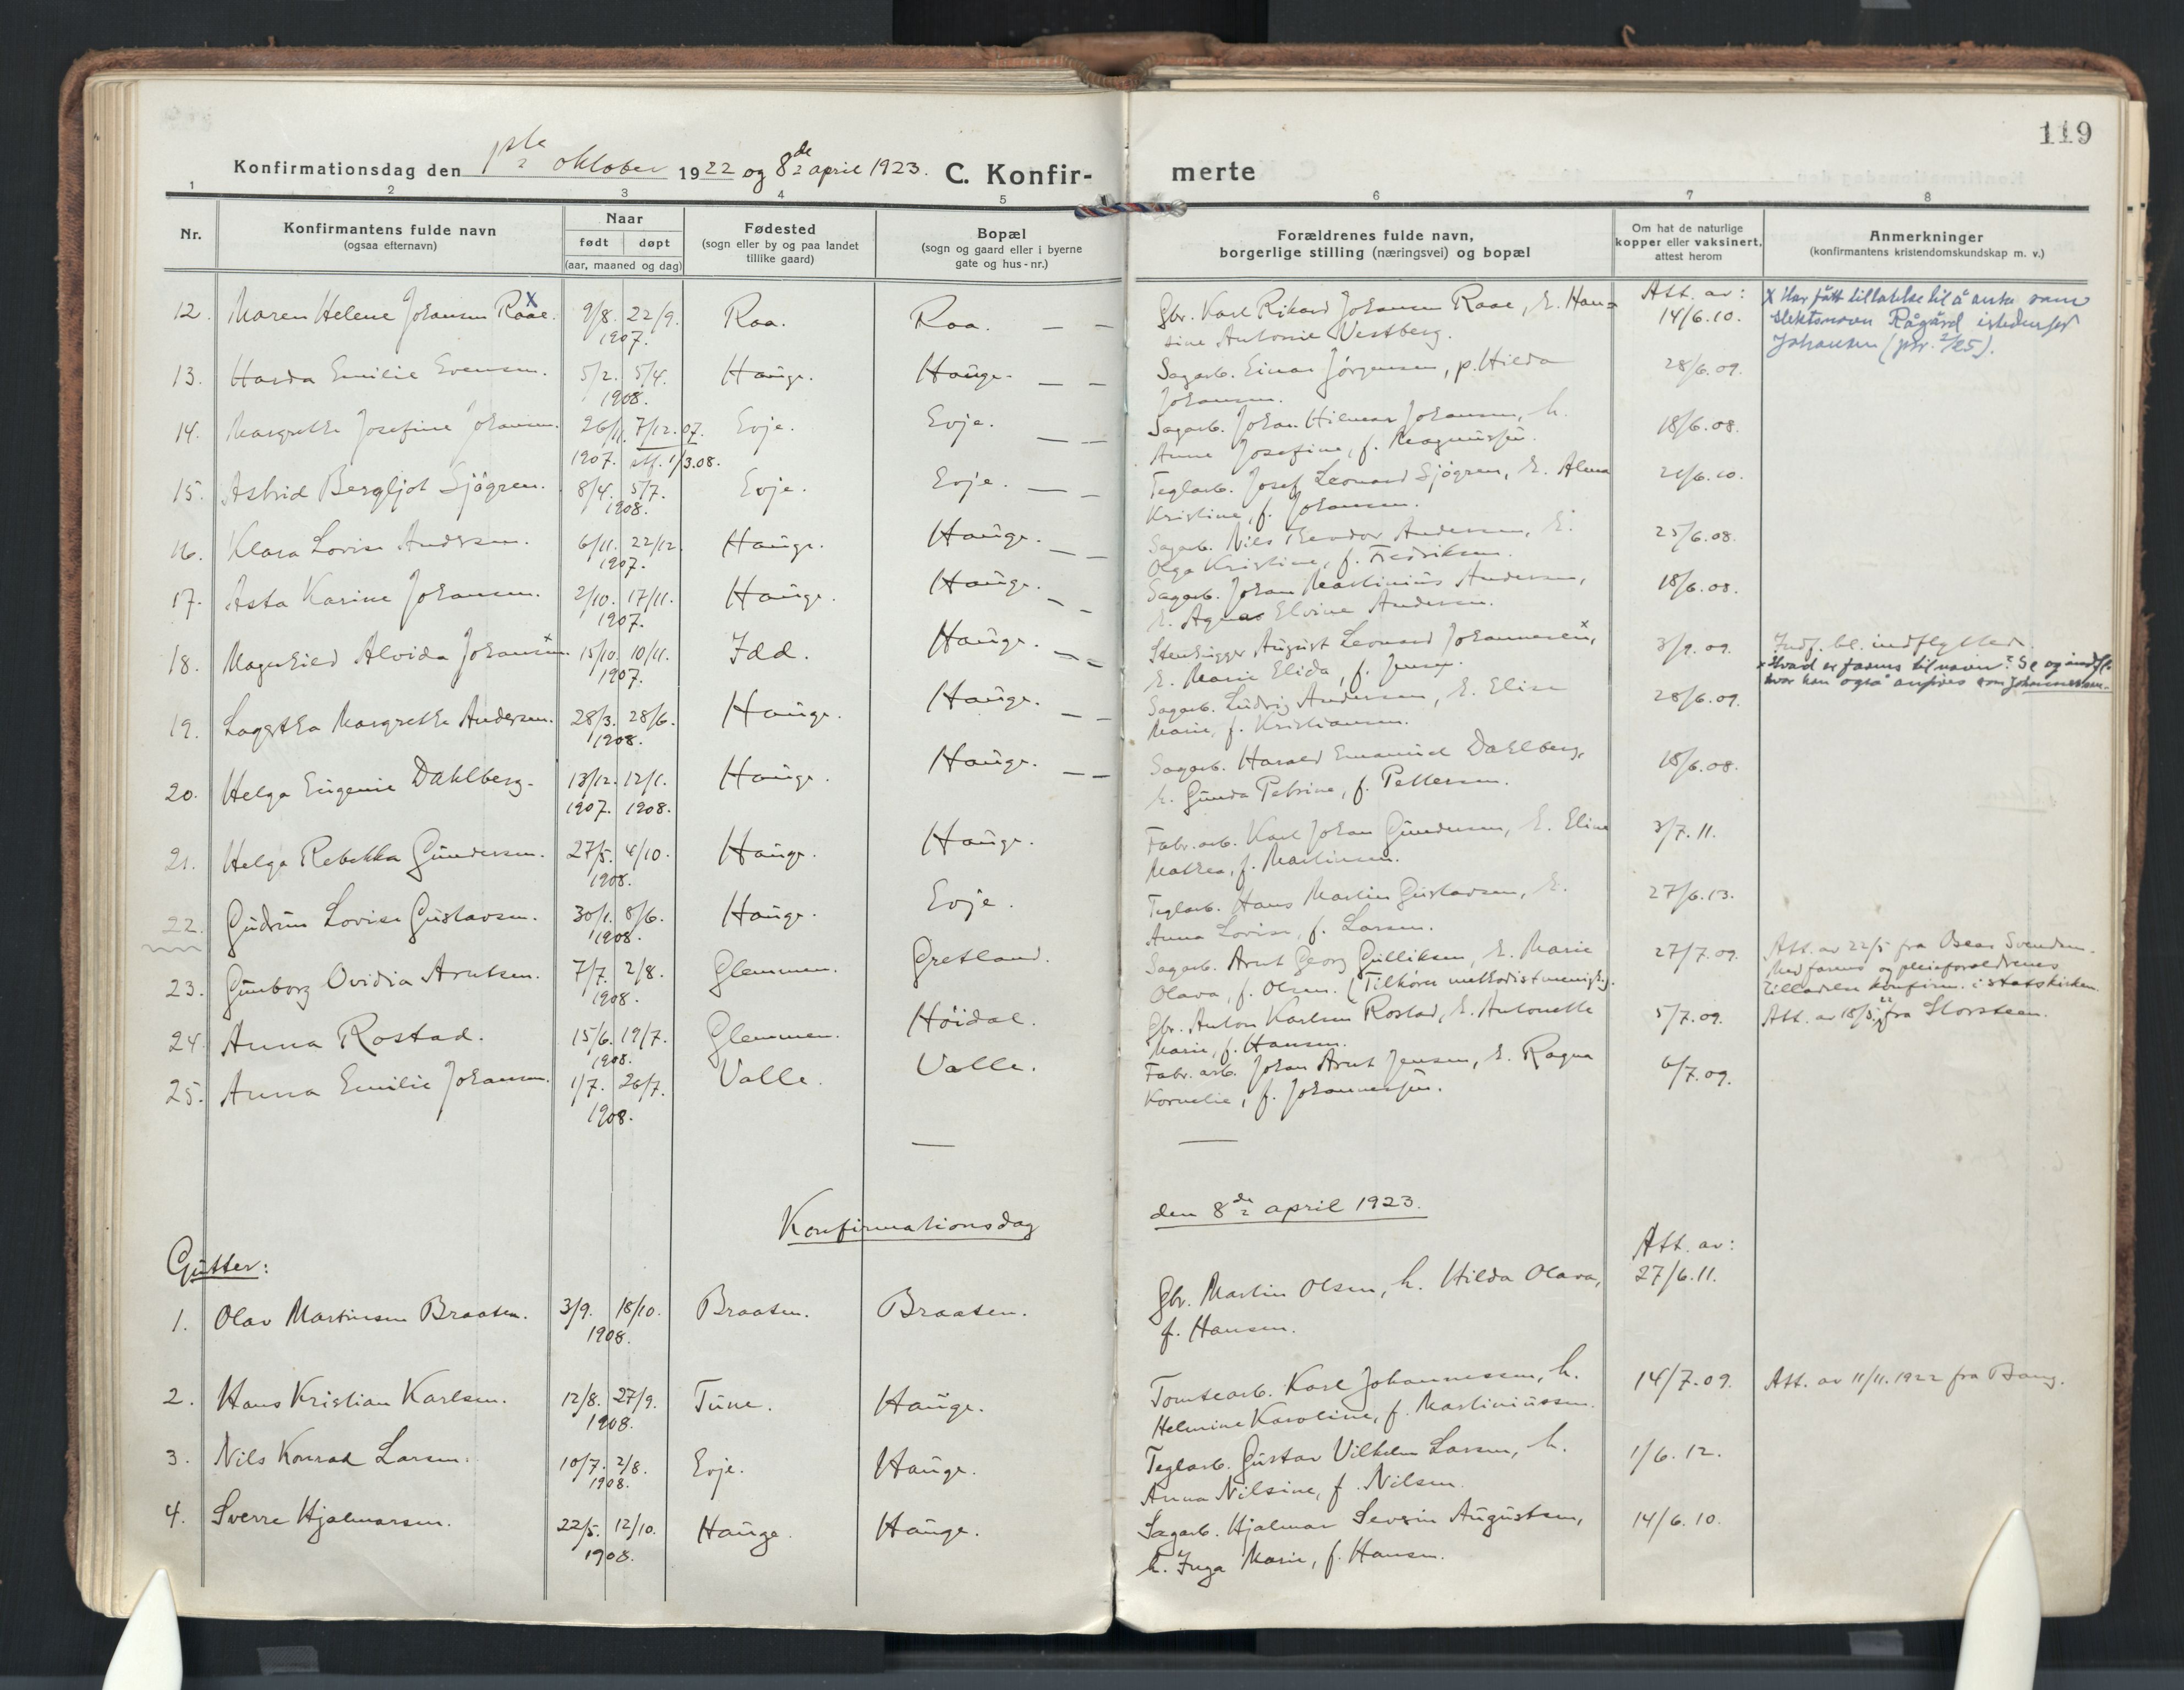 119
Konfirmationsdag den 1ste oktober 1922 og 8de april 1923. C. Konfir- merte
1 2 3 4 5 6 7 8
Nr.
Konfirmantens fulde navn
(ogsaa efternavn)
Naar
født døpt
(aar, maaned og dag)
Fødested
(sogn eller by og paa landet
tillike gaard)
Bopæl
(sogn og gaard eller i byerne
gate og hus-nr.)
Forældrenes fulde navn,
borgerlige stilling (næringsvei) og bopæl
Om hat de naturlige
kopper eller vaksinert,
attest herom
Anmerkninger
(konfirmantens kristendomskundskap m. v.)
12. Maren Helene Johansen Raae. x 9/8. 22/9. Raa. Raa. — — Gbr. Karl Rikard Johansen Raae, h. Han- Att. av: x Har fått tillatelse til å anta som
1907. sine Antonie Vestberg. 14/6.10. slektsnavn Rågård istedenfor
Johansen (jfr. 2/25).
13. Harda Emilie Evensen. 5/2. 5/4. Hauge. Hauge. — — Sagarb. Einar Jörgensen, p. Hilda 28/6.09.
1908. Johansen.
14. Margrethe Josefine Johansen. 26/11. 7/12.07. Evje. Evje. — — Sagarb. Johan Hilmar Johansen, h. 18/6.08.
1907. stf. 1/3.08. Anne Josefine, f. Magnussen.
15. Astrid Bergljot Sjögren. 8/4. 5/7. Evje. Evje. — — Teglarb. Josef Leonard Sjögren, h. Alma 21/6.10.
1908. Kristine, f. Johansen.
16. Klara Lovise Andersen. 6/11. 22/12. Hauge. Hauge. — — Sagarb. Nils Teodor Andersen, h. 25/6.08.
1907. Olga Kristine, f. Fredriksen.
17. Asta Karine Johansen. 2/10. 17/11. Hauge. Hauge. — — Sagarb. Johan Martinius Andersen, 18/6.08.
1907. h. Agnes Elvine Andersen.
18. Magnhild Alvida Johansen. x 15/10. 10/11. Idd. Hauge. — — Stenhugger August Leonard Johannesen, x 3/9.09. Indf. bl. indflyttede.
1907. h. Marie Elida, f. Jensen. x Hvad er farens tilnavn? Se og indfl.
hvor han også anføres som Johannessen.
19. Lagertha Margrethe Andersen. 28/3. 28/6. Hauge. Hauge. — — Sagarb. Ludvig Andersen, h. Elise 28/6.09.
1908. Marie, f. Kristiansen.
20. Helga Eugenie Dahlberg. 13/12. 12/1. Hauge. Hauge. — — Sagarb. Harald Emanuel Dahlberg, 18/6.08.
1907. 1908. h. Gunda Petrine, f. Pettersen.
21. Helga Rebekka Gundersen. 27/5. 4/10. Hauge. Hauge. Fabr.arb. Karl Johan Gundersen, h. Eline 3/7.11.
1908. Mathea, f. Martinsen.
22. Gudrun Lovise Gustavsen. 30/1. 8/6. Hauge. Evje. Teglarb. Hans Martin Gustavsen, h. 27/6.13.
1908. Anna Lovise, f. Larsen.
23. Gunborg Ovidia Arntsen. 7/7. 2/8. Glemmen. Gretland. Sagarb. Arnt Georg Gulliksen, h. Marie 27/7.09. Att. av 22/5 fra Oscar Svendsen.
1908. Olava, f. Olsen. (Tilhörer methodistmenigh. Med farens og pleieforældrenes
tilladelse konfirm. i statskirken.
24. Anna Rostad. 15/6. 19/7. Glemmen. Höidal. Gbr. Anton Karlsen Rostad, h. Antonette 5/7.09. Att. av 18/5.22 fra Storsteen.
1908. Marie, f. Hansen.
25. Anna Emilie Johansen. 1/7. 26/7. Valle. Valle. Fabr. arb. Johan Arnt Jensen, h. Ragna 6/7.09.
1908. Kornelie, f. Johannessen.
Konfirmationsdag den 8de april 1923.
Gutter: Att. av:
1. Olav Martinsen Braaten. 3/9. 18/10. Braaten. Braaten. Gbr. Martin Olsen, h. Hilda Olava, 27/6.11.
1908. f. Hansen.
2. Hans Kristian Karlsen. 12/8. 27/9. Tune. Hauge. Tomtearb. Karl Johannessen, h. 14/7.09. Att. av 11/11.1922 fra Bang.
1908. Helmine Karoline, f. Martiniussen.
3. Nils Konrad Larsen. 10/7. 2/8. Evje. Hauge. Teglarb. Gustav Vilhelm Larsen, h. 1/6.12.
1908. Anna Nilsine, f. Nilsen.
4. Sverre Hjalmarsen. 22/5. 12/10. Hauge. Hauge. Sagarb. Hjalmar Severin Augustsen, 14/6.10.
1908. h. Inga Marie, f. Hansen.